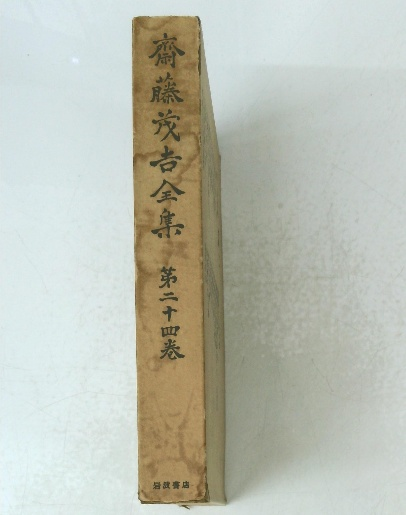 齋藤茂吉全集
第二十四巻
岩波書店